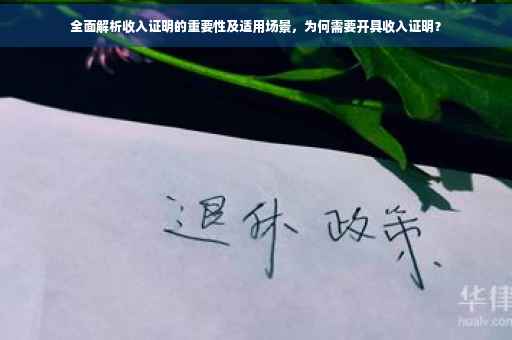 全面解析收入证明的重要性及适用场景，为何需要开具收入证明？
退休 政策
华律
hualv.com